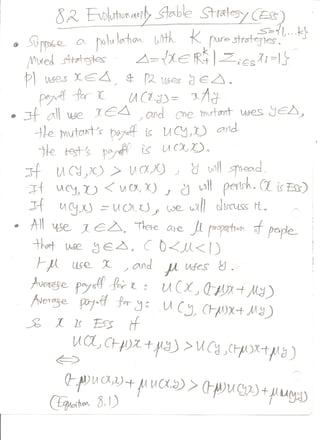 8.2 Evolutionarily Stable Strategy (ESS)
• Suppose a population with K pure strategies. S={1,...k}
Mixed strategies Δ={x∈ℝ₊ᵏ | Σ_{i∈S} xᵢ=1}
P1 uses x∈Δ, & P2 uses y∈Δ.
payoff for x u(x,y) = x'Ay
• If all use x∈Δ, and one mutant uses y∈Δ,
the mutant's payoff is u(y,x) and
the rest's payoff is u(x,x).
If u(y,x) > u(x,x), y will spread.
If u(y,x) < u(x,x), y will perish. (x is ESS)
If u(y,x) = u(x,x), we will discuss it.
• All use x∈Δ. There are μ proportion of people
that use y∈Δ. (0<μ<1)
1-μ use x, and μ uses y.
Average payoff for x: u(x, (1-μ)x + μy)
Average payoff for y: u(y, (1-μ)x + μy)
So x is ESS if
u(x, (1-μ)x + μy) > u(y, (1-μ)x + μy)
⟺
(1-μ)u(x,x) + μu(x,y) > (1-μ)u(y,x) + μu(y,y)
(Equation 8.1)